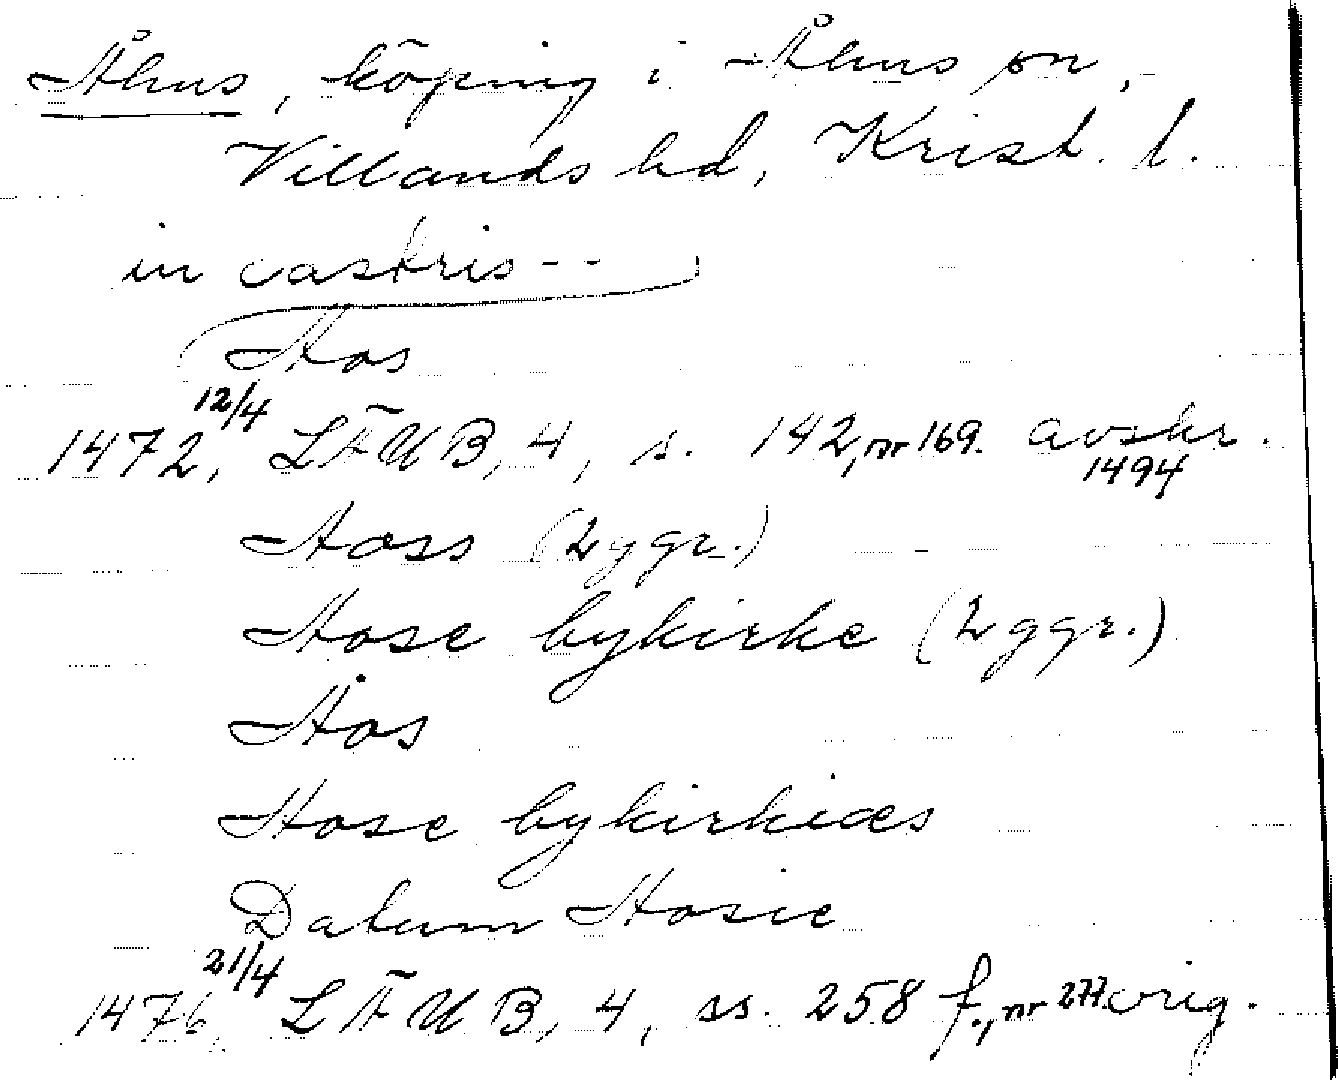 Åhus, köping i Åhus sn,
Villands hd, Krist. l.
in castris --
Aos
1472 12/4, LÄUB, 4, s. 142, nr 169. avskr. 1494
Aoss (2 ggr.)
Aose bykirke (2 ggr.)
Aȯs
Aose bykirkiæs
Datum Aosie
1476 21/4, LÄUB, 4, ss. 258 f., nr 277 orig.